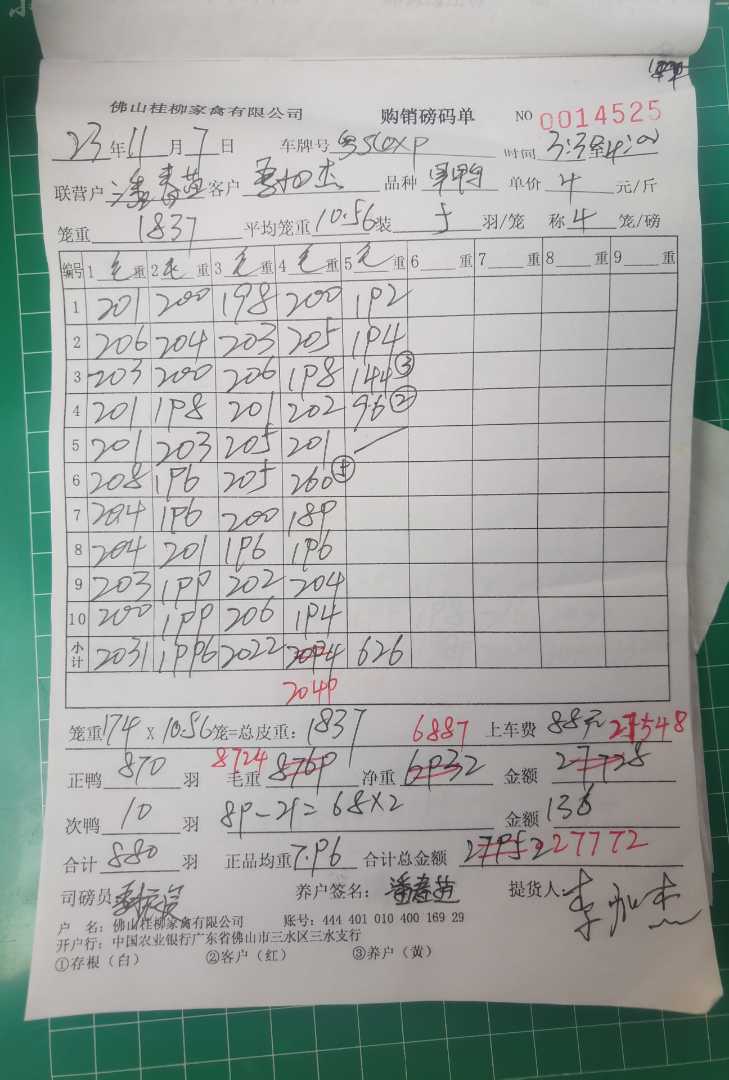 佛山桂柳家禽有限公司 购销磅码单 NO 0014525
23年11月7日 车牌号 时间
联营户 客户 品种 单价 4 元/斤
笼重 1837 平均笼重 10.56 装 5 羽/笼 称 4 笼/磅
编号 1 毛重 2 毛重 3 毛重 4 毛重 5 毛重 6 重 7 重 8 重 9 重
1 201 200 198 200 192
2 206 204 203 205 194
3 203 200 206 198 144③
4 201 198 201 202 96②
5 201 203 205 201
6 208 196 205 260⑤
7 204 196 200 189
8 204 201 196 196
9 203 199 202 204
10 200 199 206 194
小计 2031 1996 2022 626
2049
笼重 174 × 10.56 笼=总皮重: 1837 6887 上车费 88元 27548
正鸭 870 羽 8724 毛重 8769 净重 6932 金额 27728
次鸭 10 羽 89-21=68×2 金额 136
合计 880 羽 正品均重 7.96 合计总金额 27952 27772
司磅员 养户签名: 潘春苗 提货人: 李加杰
户 名: 佛山桂柳家禽有限公司 账号: 444 401 010 400 169 29
开户行: 中国农业银行广东省佛山市三水区三水支行
①存根(白) ②客户(红) ③养户(黄)